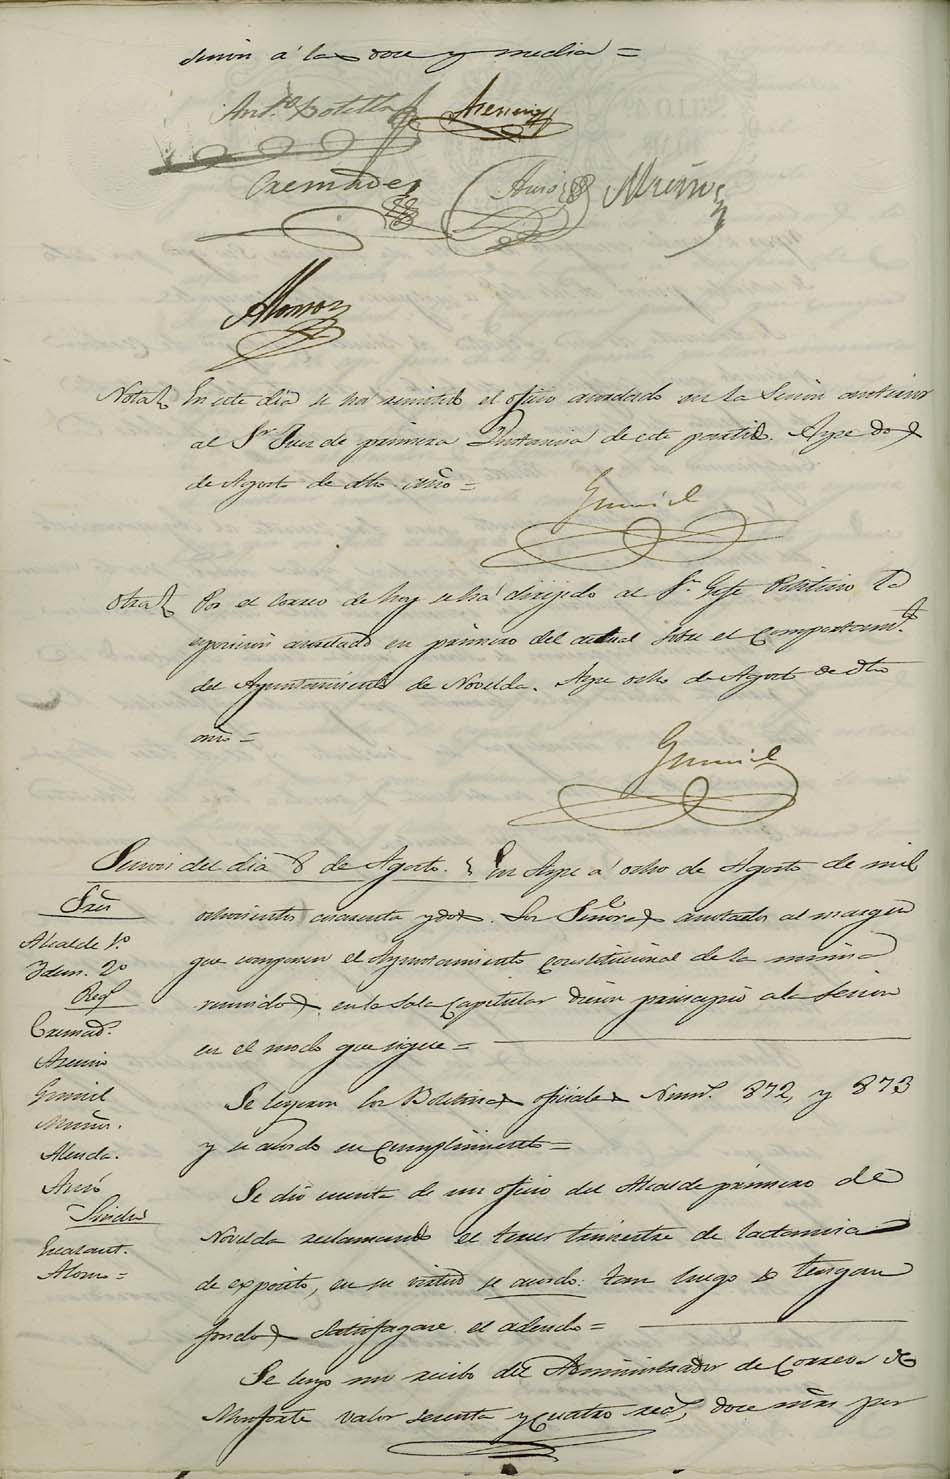 sesion á las doce y media =
Anto. Botella Asensio
Cremades Azuar Muñoz
Alonso
Nota En este dia se ha remitido el oficio acordado en la Sesion anterior
al Sr. Juez de primera Instancia de este partido. Aspe dos
de Agosto de dho año =
Gumiel
Otra Por el correo de hoy se há dirijido al Sr. Gefe Politico la
esposicion acordada en primero del actual sobre el comportamto.
del Ayuntamiento de Novelda. Aspe ocho de Agosto de dho
año =
Gumiel
Sesion del dia 8 de Agosto. En Aspe á ocho de Agosto de mil
Sres
ochocientos cuarenta y dos. Los Señores anotados al margen
Alcalde 1º
que componen el Ayuntamiento Constitucional de la misma
Idem. 2º
Regs
reunidos en la Sala Capitular dieron principio a la Sesion
Cremads.
en el modo que sigue =
Asensio
Gumiel
Se leyeron los Boletines oficiales Nums. 872, y 873
Muñoz.
y se acordó su cumplimiento =
Alenda.
Se dió cuenta de un oficio del Alcalde primero de
Sindcs
Novelda reclamando el tercer trimestre de lactancia
Alonso =
de expósitos, en su virtud se acordó: tan luego se tengan
fondos satisfagase el adeudo =
Se leyó un recibo del Administrador de Correos de
Monforte valor sesenta y cuatro rs, doce mrs por